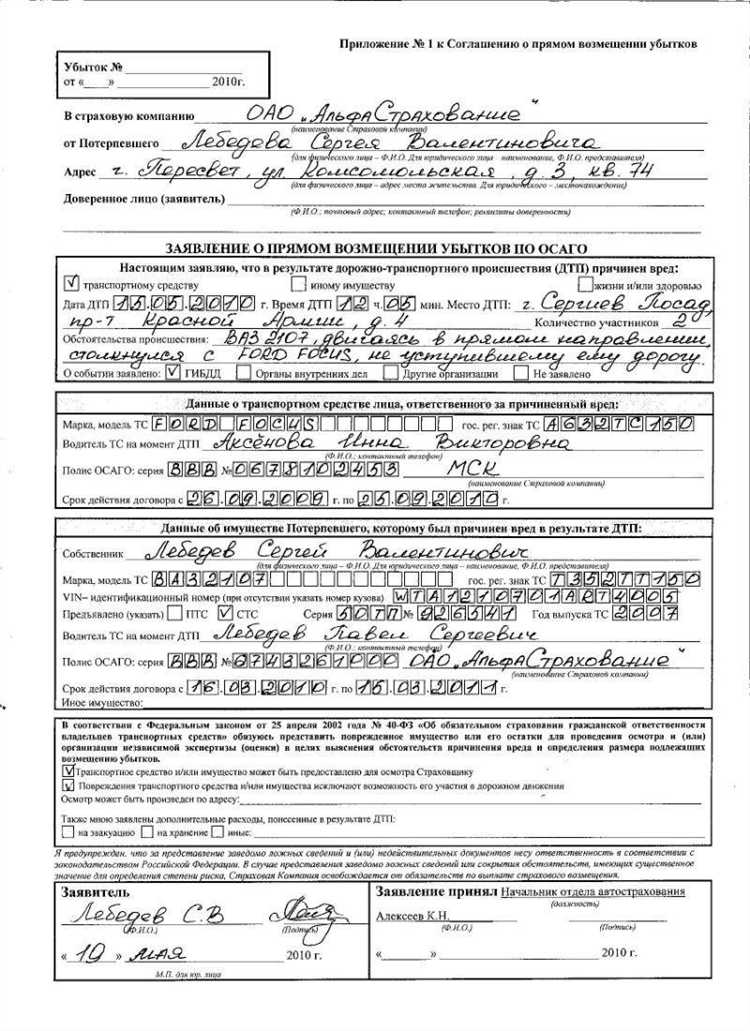 Приложение № 1 к Соглашению о прямом возмещении убытков
Убыток №
от «    »    2010г.
В страховую компанию ОАО „АльфаСтрахование“
(наименование Страховой компании)
от Потерпевшего Лебедева Сергея Валентиновича
(для физического лица – Ф.И.О. Для юридического лица – наименование, Ф.И.О. представителя)
Адрес г. Пересвет, ул. Комсомольская, д. 3, кв. 74
(для физического лица – адрес места жительства. Для юридического – местонахождение)
Доверенное лицо (заявитель)
(Ф.И.О.; почтовый адрес; контактный телефон; реквизиты доверенности)
ЗАЯВЛЕНИЕ О ПРЯМОМ ВОЗМЕЩЕНИИ УБЫТКОВ ПО ОСАГО
Настоящим заявляю, что в результате дорожно-транспортного происшествия (ДТП) причинен вред:
V транспортному средству иному имуществу жизни и/или здоровью
Дата ДТП 15.05.2010 г. Время ДТП 12 ч. 05 мин. Место ДТП: г. Сергиев Посад,
пр-т Красной Армии, д. 4 Количество участников 2
Обстоятельства происшествия: ВАЗ 2107, двигаясь в прямом направлении,
столкнулся с FORD FOCUS, не уступившему ему дорогу.
О событии заявлено: V ГИБДД Органы внутренних дел Другие организации Не заявлено
Данные о транспортном средстве лица, ответственного за причиненный вред:
Марка, модель ТС FORD FOCUS гос. рег. знак ТС А632ТС150
Водитель ТС на момент ДТП Аксёнова Инна Викторовна
(Ф.И.О.; контактный телефон)
Полис ОСАГО: серия ВВВ № 0678102453 МСК
(наименование Страховой компании)
Срок действия договора с 26.09.2009 г. по 25.09.2010 г.
Данные об имуществе Потерпевшего, которому был причинен вред в результате ДТП:
Собственник Лебедев Сергей Валентинович
(для физического лица – Ф.И.О. Для юридического лица – наименование, Ф.И.О. представителя)
Марка, модель ТС ВАЗ2107 гос. рег. знак ТС Т352ТТ150
VIN– идентификационный номер (при отсутствии указать номер кузова) WTA1210701ART4005
Предъявлено (указать) ПТС V СТС Серия 50ТП № 926541 Год выпуска ТС 2007
Водитель ТС на момент ДТП Лебедев Павел Сергеевич
(Ф.И.О.; контактный телефон)
Полис ОСАГО: серия ВВВ № 0743261000 ОАО „АльфаСтрахование“
(наименование Страховой компании)
Срок действия договора с 16.03.2010 г. по 15.03.2011 г.
Иное имущество:
В соответствии с Федеральным законом от 25 апреля 2002 года № 40-ФЗ «Об обязательном страховании гражданской ответственности
владельцев транспортных средств» обязуюсь представить поврежденное имущество или его остатки для проведения осмотра и (или)
организации независимой экспертизы (оценки) в целях выяснения обстоятельств причинения вреда и определения размера подлежащих
возмещению убытков.
V Транспортное средство и/или имущество может быть предоставлено для осмотра Страховщику
V Повреждения транспортного средства и/или имущества исключают возможность его участия в дорожном движении
Осмотр может быть произведен по адресу:
Также мною заявлены дополнительные расходы, понесенные в результате ДТП:
на эвакуацию на хранение иные:
Я предупрежден, что за представление заведомо ложных сведений и (или) недействительных документов несу ответственность в соответствии с
законодательством Российской Федерации. В случае представления заведомо ложных сведений или сокрытия обстоятельств, имеющих существенное
значение для определения степени риска, Страховая Компания освобождается от обязательств по выплате страхового возмещения.
Заявитель
Лебедев С.В
(Ф.И.О.) (Подпись)
« 19 » мая 2010 г.
М.П. для юр. лица
Заявление принял Начальник отдела автострахования
(должность)
Алексеев К.Н.
(Ф.И.О.) (Подпись)
«    »    2010 г.